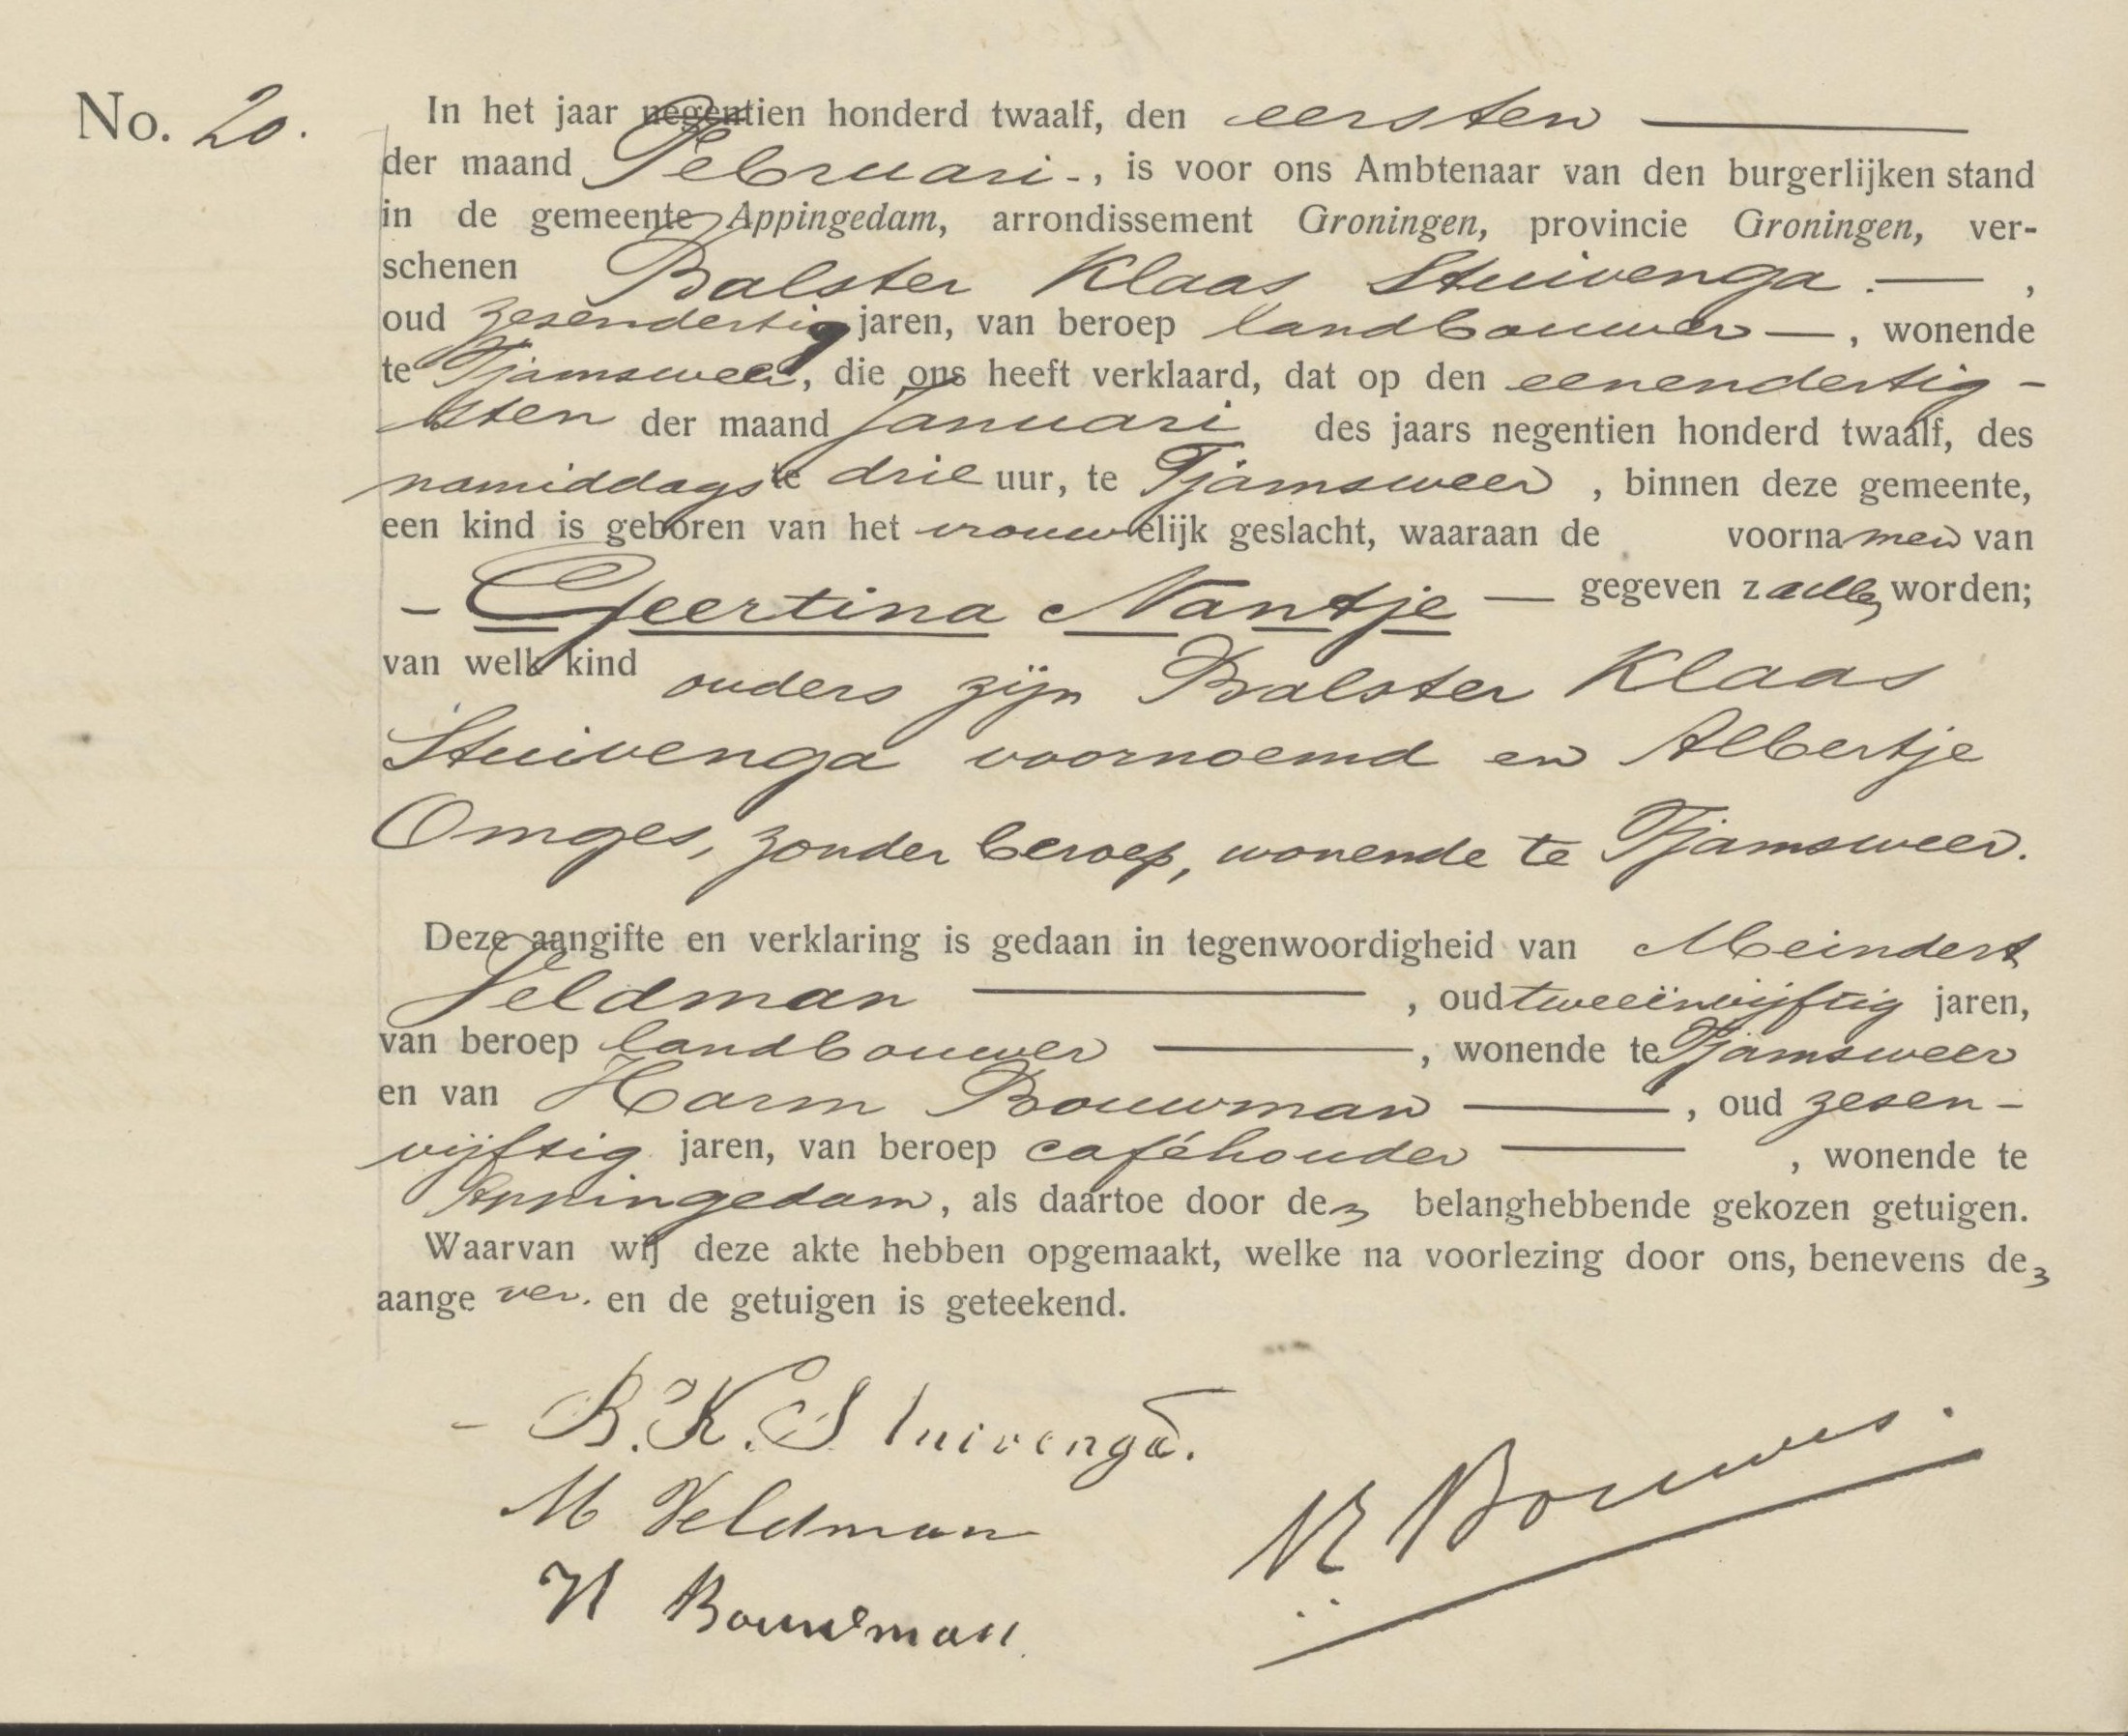 No. 20.
In het jaar negentien honderd twaalf, den eersten —
der maand Februari -, is voor ons Ambtenaar van den burgerlijken stand
in de gemeente Appingedam, arrondissement Groningen, provincie Groningen, ver-
schenen Balster Klaas Stuivenga. — ,
oud zesendertig jaren, van beroep landbouwer —, wonende
te Tjamsweer, die ons heeft verklaard, dat op den eenendertig -
sten der maand Januari des jaars negentien honderd twaalf, des
namiddags te drie uur, te Tjamsweer , binnen deze gemeente,
een kind is geboren van het vrouwelijk geslacht, waaraan de voornamen van
- Geertina Nantje — gegeven zullen worden;
van welk kind ouders zijn Balster Klaas
Stuivenga voornoemd en Albertje
Omges, zonder beroep, wonende te Tjamsweer.
Deze aangifte en verklaring is gedaan in tegenwoordigheid van Meindert
Veldman — , oud tweeënvijftig jaren,
van beroep landbouwer —, wonende te Tjamsweer
en van Harm Bouwman —, oud zesen-
vijftig jaren, van beroep caféhouder — , wonende te
Appingedam, als daartoe door den belanghebbende gekozen getuigen.
Waarvan wij deze akte hebben opgemaakt, welke na voorlezing door ons, benevens den
aangever. en de getuigen is geteekend.
- B. K. Stuivenga.
M Veldman
H Bouwman.
Bouwes.